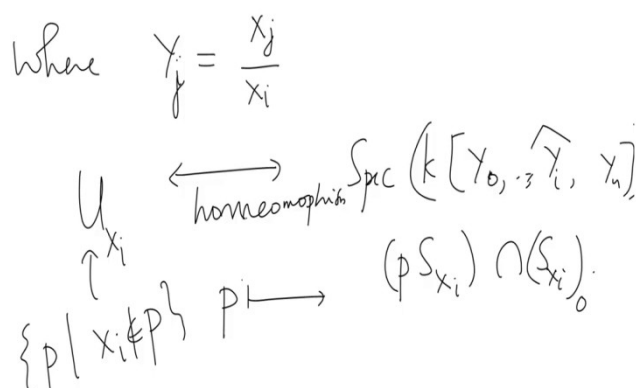 where Y_j = x_j / x_i
U_{x_i} ⟷ homeomophism Spec (k[Y_0, .., \widehat{Y_i}, Y_n]
{p | x_i ∉ p} p ⟼ (pS_{x_i}) ∩ (S_{x_i})_0.